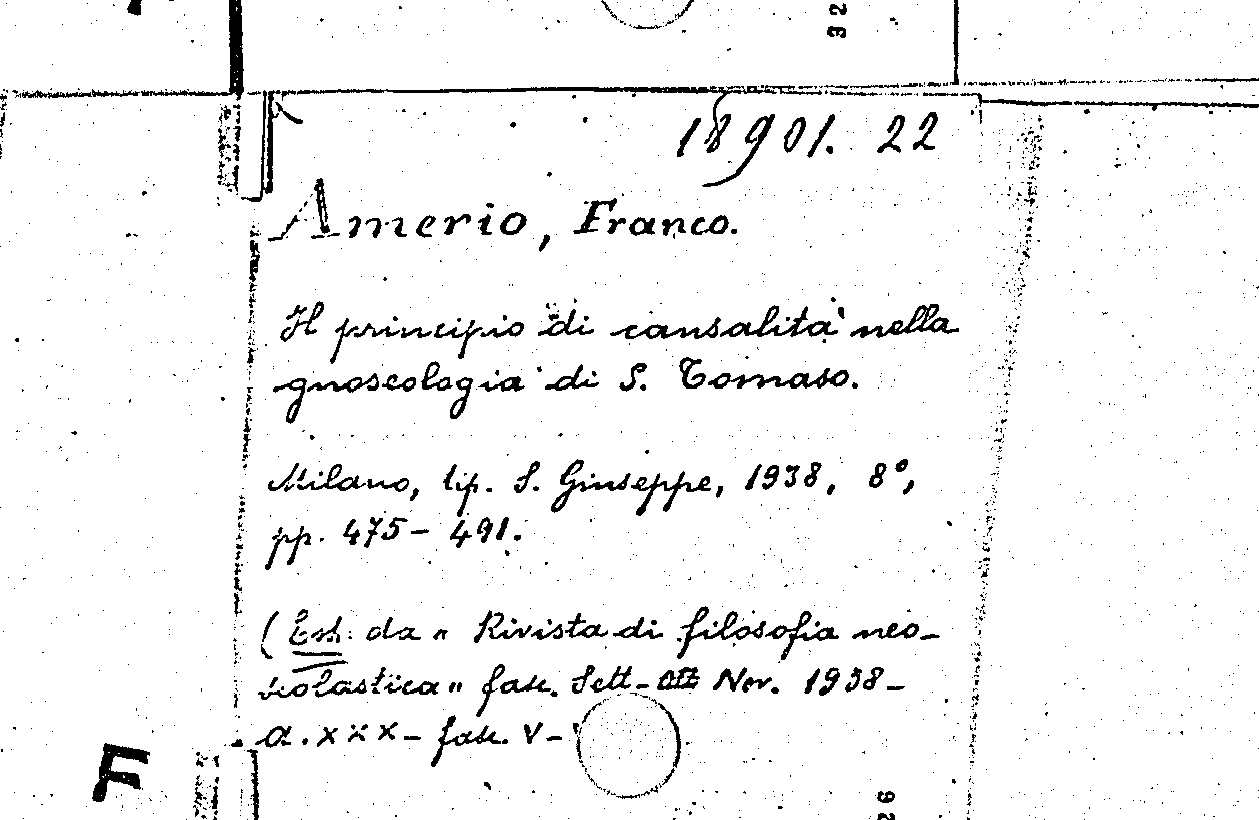 32
18901. 22
Amerio, Franco.
Il principio di causalità nella
gnoseologia di S. Tomaso.
Milano, tip. S. Giuseppe, 1938, 8°,
pp. 475-491.
(Est. da " Rivista di filosofia neo-
scolastica" fasc. Sett- Nov. 1938-
a. XXX- fasc. V-
F
26